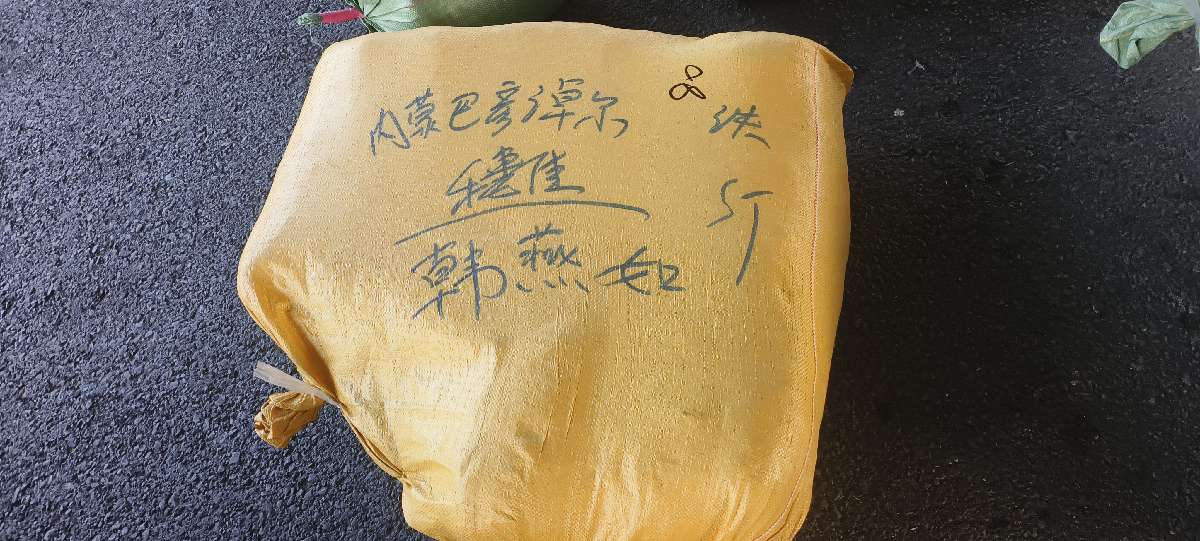 内蒙巴彦淖尔 8
穗佳
韩燕如